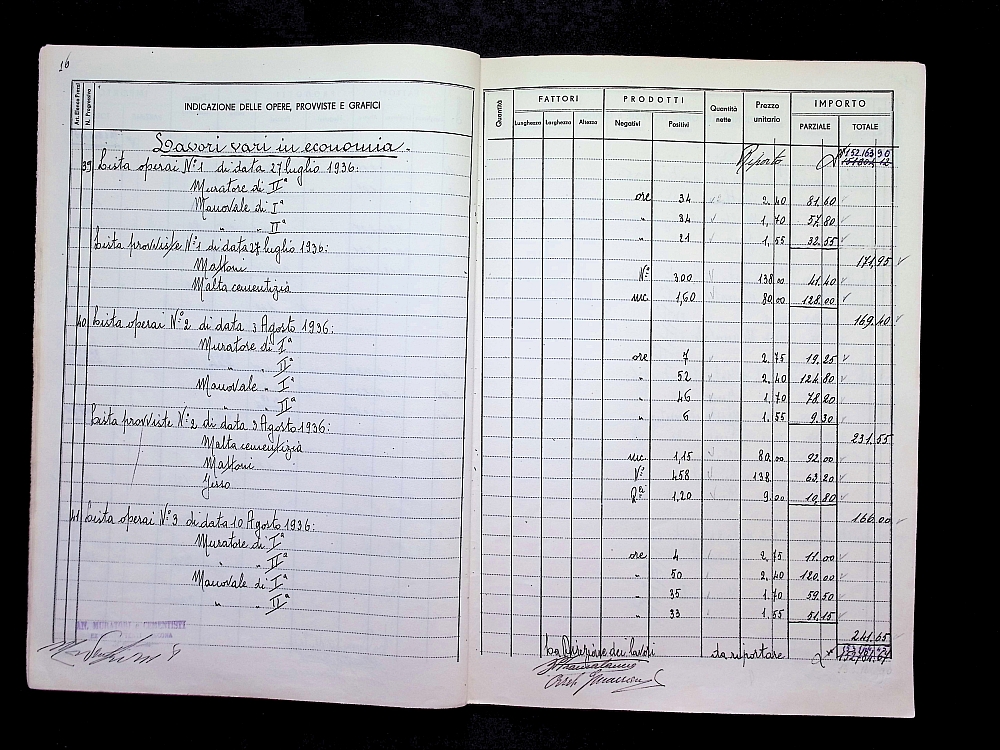 16
An. Elenco Prezzi
N. Progressivo
INDICAZIONE DELLE OPERE, PROVVISTE E GRAFICI
Quantità
FATTORI
Lunghezza Larghezza Altezza
PRODOTTI
Negativi Positivi
Quantità nette
Prezzo unitario
IMPORTO
PARZIALE TOTALE
Lavori vari in economia.
Riporto 152.163,90
39 Lista operai N.° 1 di data 27 luglio 1936:
Muratore di IIª ore 34 2.40 81.60
Manovale di Iª " 34 1,70 57.80
" " IIª " 21 1,55 32.55
Lista provviste N.° 1 di data 27 luglio 1936: 171,95
Mattoni N.° 300 138.00 41.40
Malta cementizia mc. 1,60 80.00 128.00
169.40
40 Lista operai N.° 2 di data 3 Agosto 1936:
Muratore di Iª ore 7 2.75 19.25
" " IIª " 52 2.40 124.80
Manovale " Iª " 46 1.70 78.20
" " IIª " 6 1.55 9.30
Lista provviste N.° 2 di data 3 Agosto 1936: 231.55
Malta cementizia mc. 1,15 80.00 92.00
Mattoni N.° 458 138. 63.20
Gesso 1,20 9.00 10.80
166.00
41 Lista operai N.° 3 di data 10 Agosto 1936:
Muratore di Iª ore 4 2.75 11.00
" " IIª " 50 2.40 120.00
Manovale di Iª " 35 1.70 59.50
" " IIª " 33 1.55 51.15
241.65
AN. MURATORI E CEMENTISTI
La Direzione dei lavori da riportare